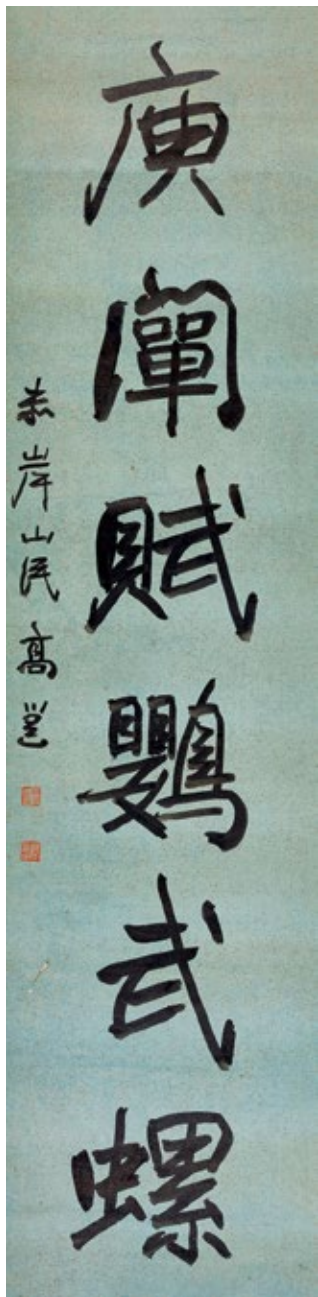 庾闡賦鸚武螺
赤岸山民高邕